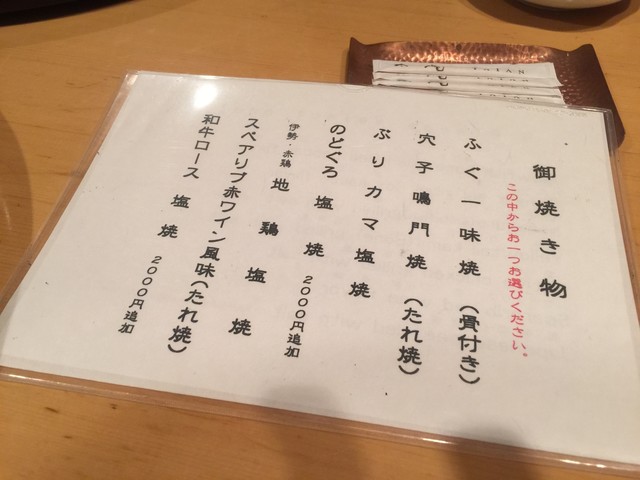 御焼き物
この中からお一つお選びください。
ふぐ一味焼(骨付き)
穴子鳴門焼(たれ焼)
ぶりカマ塩焼
のどぐろ塩焼 2000円追加
伊勢・赤鶏 地鶏塩焼
スペアリブ赤ワイン風味(たれ焼)
和牛ロース 塩焼 2000円追加